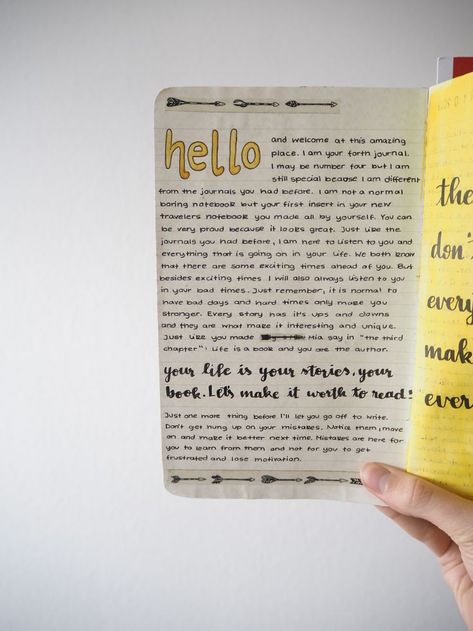 hello
and welcome at this amazing
place. I am your forth journal.
I may be number four but I am
still special because I am different
from the journals you had before. I am not a normal
boring notebook but your first insert in your new
travelers notebook you made all by yourself. You can
be very proud because it looks great. Just like the
journals you had before, I am here to listen to you and
everything that is going on in your life. We both know
that there are some exciting times ahead of you. But
besides exciting times I will also always listen to you
in your bad times. Just remember, it is normal to
have bad days and hard times only make you
stronger. Every story has it's ups and downs
and they are what make it interesting and unique.
Just like you made Mia say in "the third
chapter": Life is a book and you are the author.
your life is your stories, your
book. Let's make it worth to read!
Just one more thing before I'll let you go off to write.
Don't get hung up on your mistakes. Notice them, move
on and make it better next time. Mistakes are here for
you to learn from them and not for you to get
frustrated and lose motivation.
the
don'
every
mak
ever